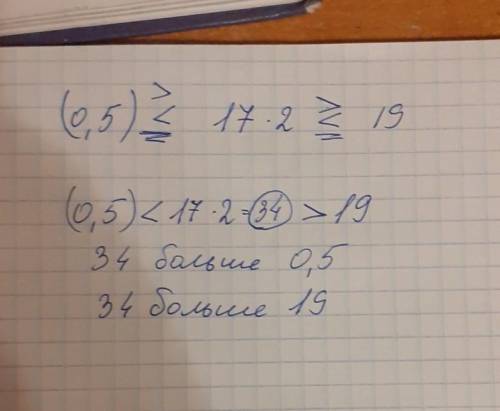 (0,5) > < = 17·2 > < = 19
(0,5) < 17·2=34 > 19
34 больше 0,5
34 больше 19